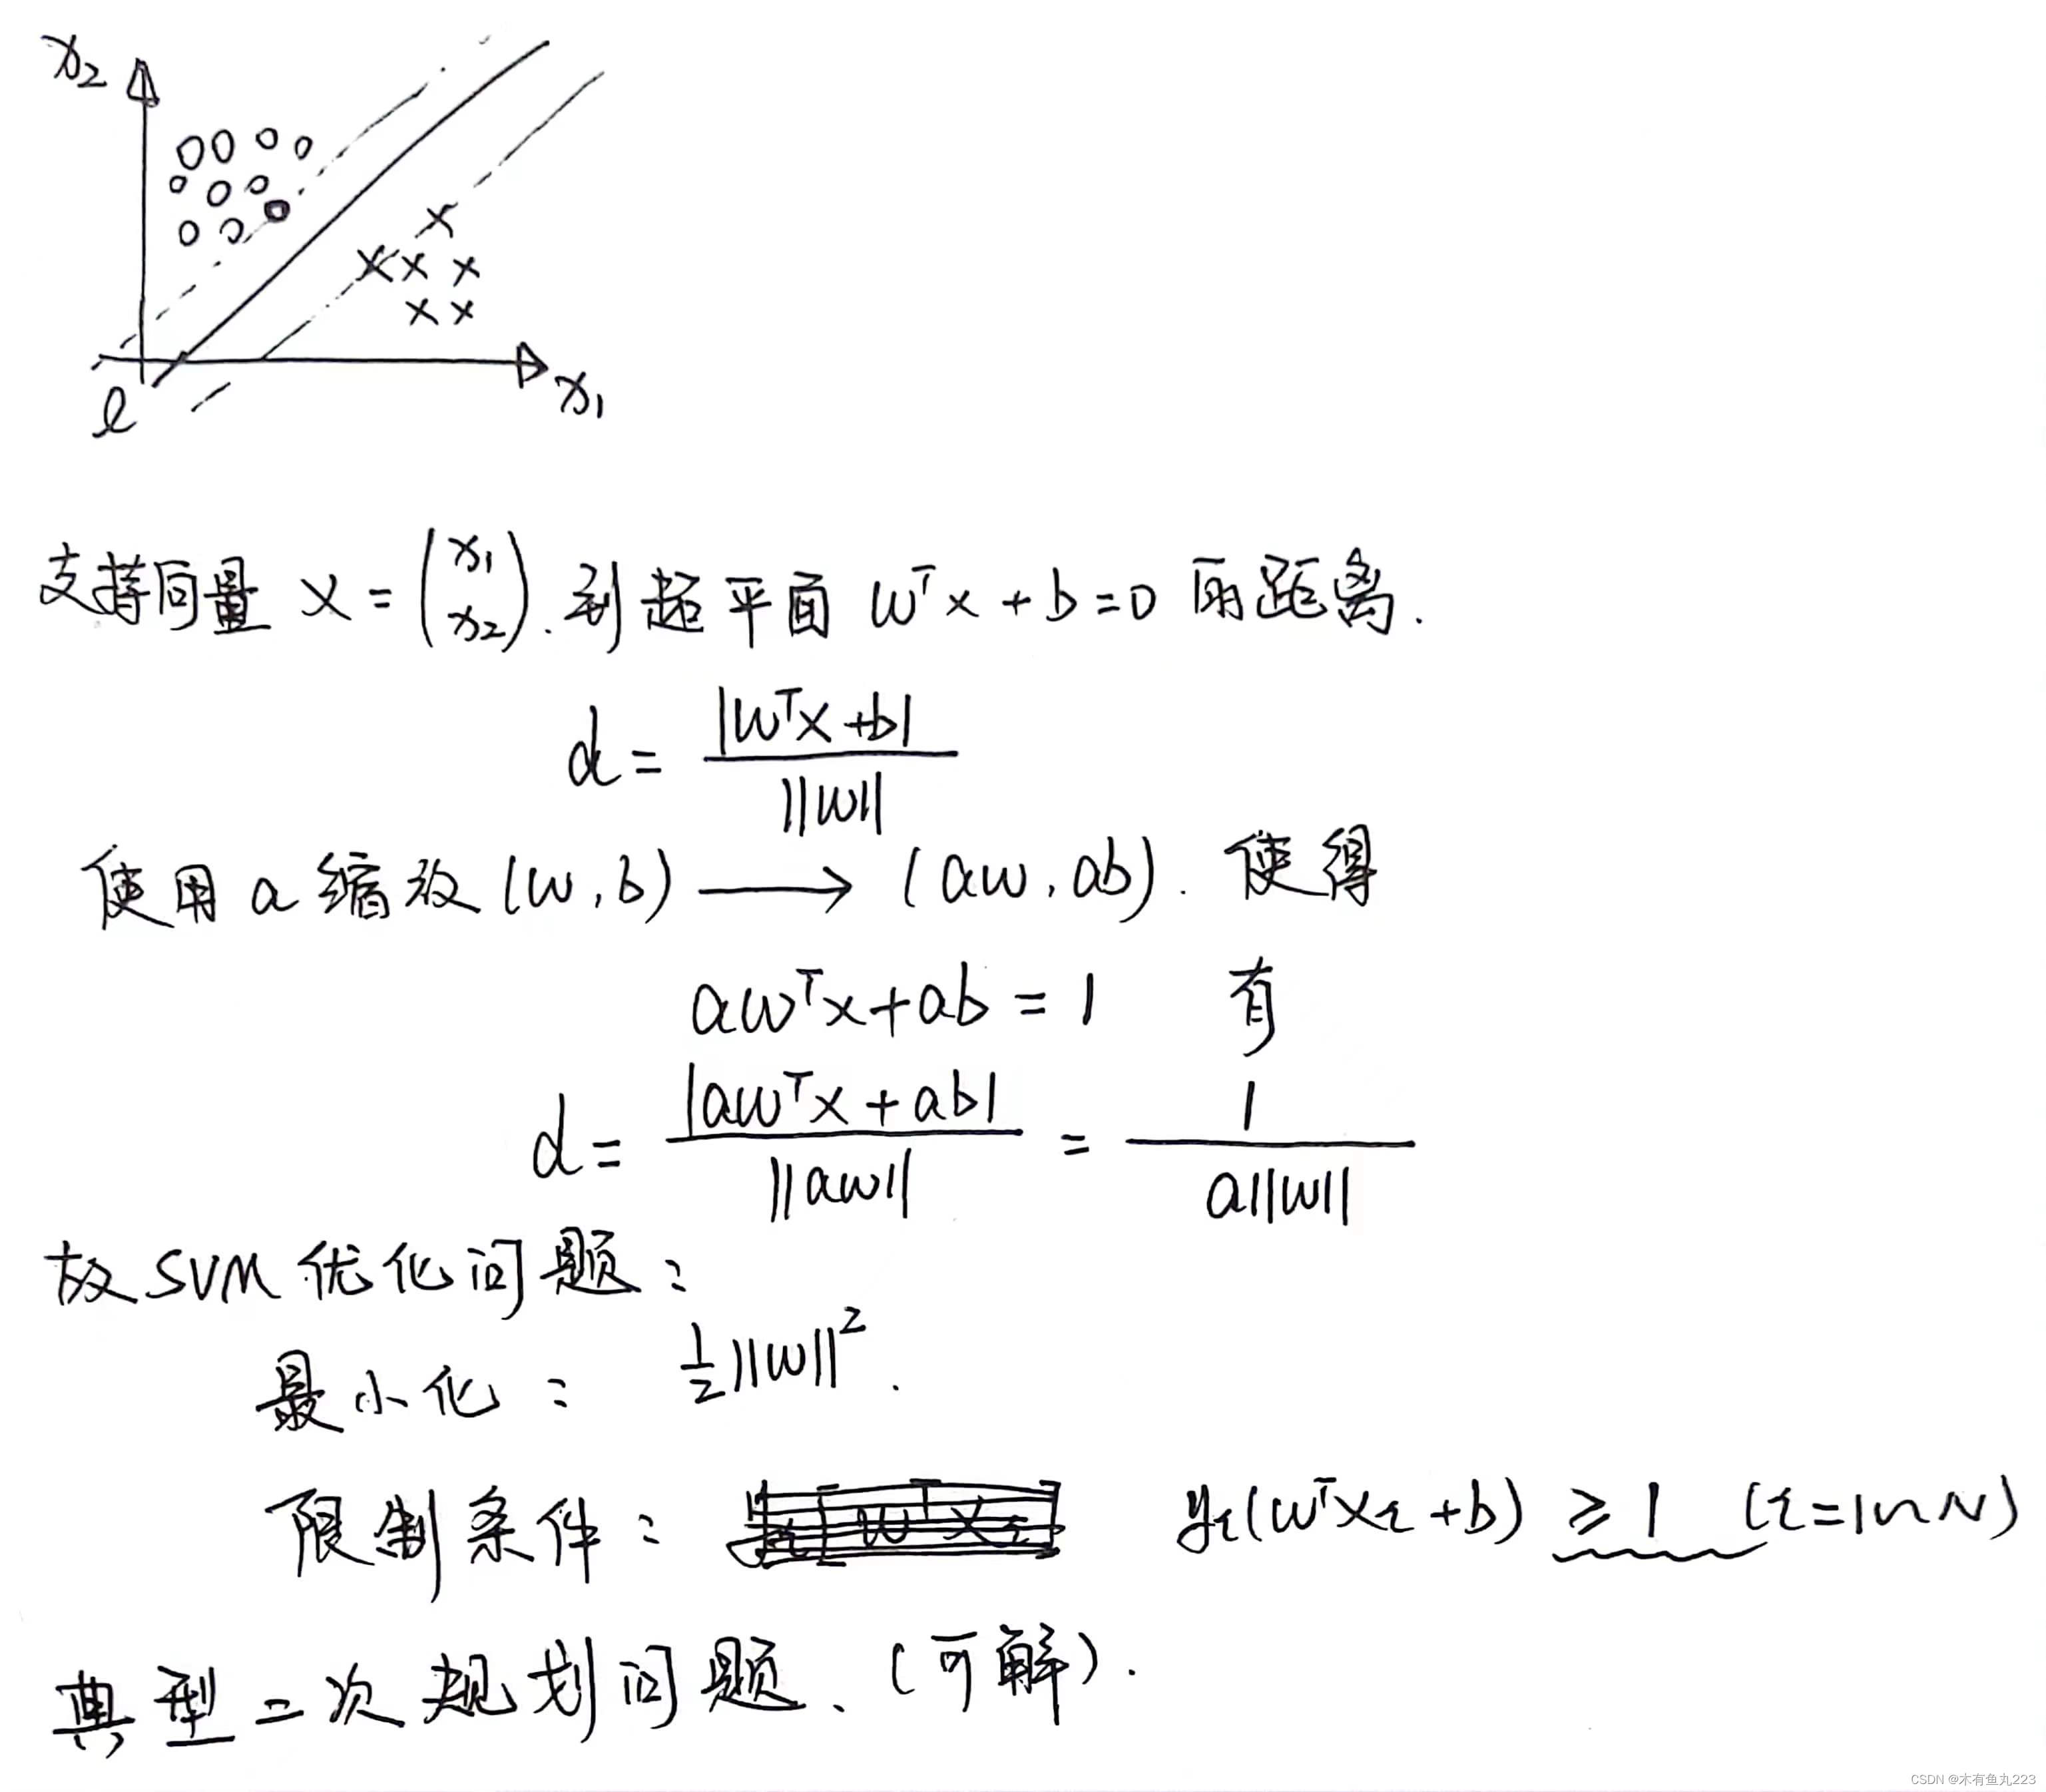 x₂
x₁
l
支持向量 X = (x₁ x₂). 到超平面 wᵀx + b = 0 的距离.
d = |wᵀx + b| / ||w||
使用 a 缩放 (w, b) ⟶ (aw, ab). 使得
awᵀx + ab = 1 有
d = |awᵀx + ab| / ||aw|| = 1 / a||w||
故 SVM 优化问题:
最小化: ½||w||².
限制条件: yᵢ(wᵀXᵢ + b) ≥ 1 (i = 1~N)
典型二次规划问题、(可解).
CSDN @木有鱼丸223